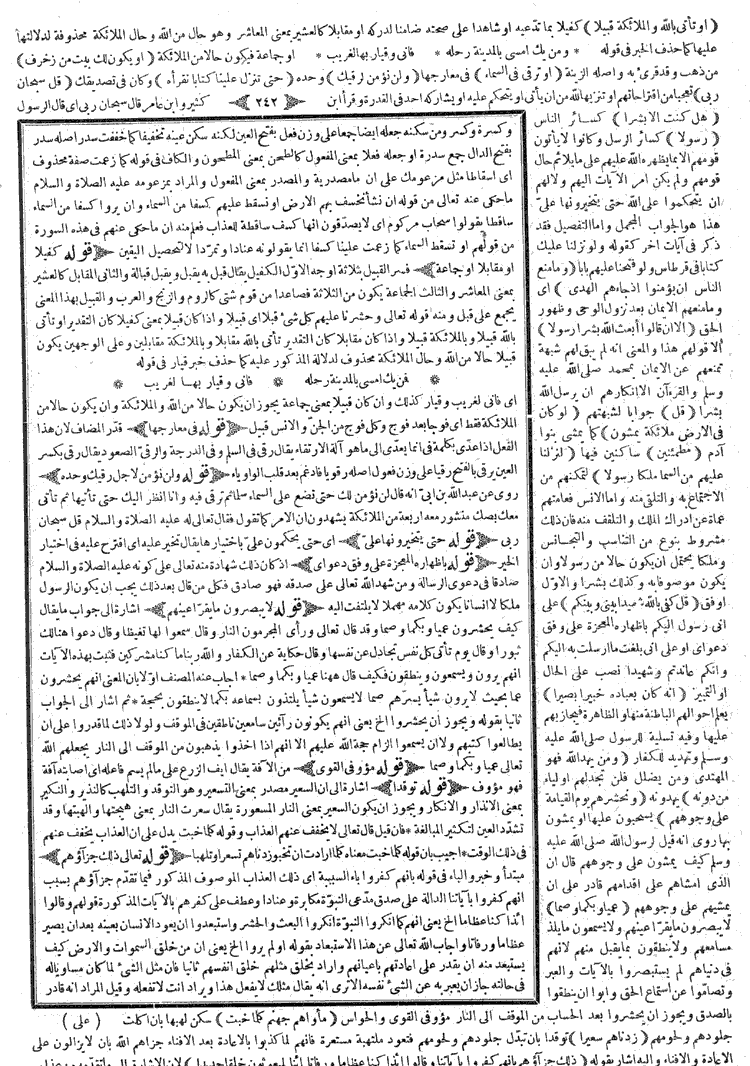 ( او تأتى بالله والملائكة قبيلا ) كفيلا بما تدعيه او شاهدا على صحته ضامنا لدركه او مقابلا كالعشير بمعنى المعاشر وهو حال من الله وحال الملائكة محذوفة لدلالتها
عليها كما حذف الخبر فى قوله * ومن يك امسى بالمدينة رحله * فانى وقيار بها لغريب * او جماعة فيكون حالا من الملائكة ( او يكون لك بيت من زخرف )
من ذهب وقد قرئ به واصله الزينة ( او ترقى فى السماء ) فى معارجها ( ولن نؤمن لرقيك ) وحده ( حتى تنزل علينا كتابا نقرأه ) وكان فيه تصديقك ( قل سبحان
ربى ) تعجبا من اقتراحاتهم او تنزيها لله من ان يأتى او يتحكم عليه او يشاركه احد فى القدرة وقرأ ابن ﴿ ٢٤٢ ﴾ كثير وابن عامر قال سبحان ربى اى قال الرسول
( هل كنت الا بشرا ) كسائر الناس
( رسولا ) كسائر الرسل وكانوا لا يأتون
قومهم الا بما يظهره الله عليهم على ما يلائم حال
قومهم ولم يكن امر الآيات اليهم ولا لهم
ان يتحكموا على الله حتى يتخيرونها علىّ
هذا هو الجواب المجمل واما التفصيل فقد
ذكر فى آيات اخر كقوله ولو نزلنا عليك
كتابا فى قرطاس ولو فتحنا عليهم بابا ( وما منع
الناس ان يؤمنوا اذ جاءهم الهدى ) اى
وما منعهم الايمان بعد نزول الوحى وظهور
الحق ( الا ان قالوا أبعث الله بشرا رسولا )
الا قولهم هذا والمعنى انه لم يبق لهم شبهة
تمنعهم عن الايمان بمحمد صلى الله عليه
وسلم والقرءآن الا انكارهم ان يرسل الله
بشرا ( قل ) جوابا لشبهتهم ( لو كان
فى الارض ملائكة يمشون ) كما يمشى بنوا
آدم ( مطمئنين ) ساكنين فيها ( لنزلنا
عليهم من السماء ملكا رسولا ) لتمكنهم من
الاجتماع به والتلقى منه واما الانس فعامتهم
عماة عن ادراك الملك والتلقف منه فان ذلك
مشروط بنوع من التناسب والتجانس
وملكا يحتمل ان يكون حالا من رسولا وان
يكون موصوفا به وكذلك بشرا والاول
اوفق ( قل كفى بالله شهيدا بينى وبينكم ) على
انى رسول اليكم باظهاره المعجزة على وفق
دعواى او على انى بلغت ما ارسلت به اليكم
وانكم عاندتم وشهيدا نصب على الحال
او التمييز ( انه كان بعباده خبيرا بصيرا )
يعلم احوالهم الباطنة منها والظاهرة فيجازيهم
عليها وفيه تسلية للرسول صلى الله عليه
وسلم وتهديد للكفار ( ومن يهد الله فهو
المهتدى ومن يضلل فلن تجد لهم اولياء
من دونه ) يهدونه ( ونحشرهم يوم القيامة
على وجوههم ) يسحبون عليها او يمشون
بها روى انه قيل لرسول الله صلى الله عليه
وسلم كيف يمشون على وجوههم قال ان
الذى امشاهم على اقدامهم قادر على ان
يمشيهم على وجوههم ( عميا وبكما وصما )
لا يبصرون ما يقر اعينهم ولا يسمعون ما يلذ
مسامعهم ولا ينطقون بما يقبل منهم لانهم
فى دنياهم لم يستبصروا بالآيات والعبر
وتصاموا عن استماع الحق وابوا ان ينطقوا
وكسرة وكسر ومن سكنه جعله ايضا جمعا على وزن فعل بفتح العين لكنه سكن عينه تخفيفا كما خففت سدر اصله سدر
بفتح الدال جمع سدرة او جعله فعلا بمعنى المفعول كالطحن بمعنى المطحون والكاف فى قوله كما زعمت صفة محذوف
اى اسقاطا مثل مزعومك على ان ما مصدرية والمصدر بمعنى المفعول والمراد بمزعومه عليه الصلاة والسلام
ما حكى عنه تعالى من قوله ان نشأ نخسف بهم الارض او نسقط عليهم كسفا من السماء وان يروا كسفا من السماء
ساقطا يقولوا سحاب مركوم اى لا يصدقون انها كسف ساقطة للعذاب فعلم منه ان ما حكى عنهم فى هذه السورة
من قولهم او تسقط السماء كما زعمت علينا كسفا انما يقولونه عنادا وتمردا لا لتحصيل اليقين ﴿ قوله كفيلا
او مقابلا او جماعة ﴾ فسر القبيل بثلاثة اوجه الاول الكفيل يقال قبل به يقبل ويقبل قبالة والثانى المقابل كالعشير
بمعنى المعاشر والثالث الجماعة يكون من الثلاثة فصاعدا من قوم شتى كالروم والزنج والعرب والقبيل بهذا المعنى
يجمع على قبل ومنه قوله تعالى وحشرنا عليهم كل شئ قبلا اى قبيلا واذا كان قبيلا بمعنى كفيلا كان التقدير او تأتى
بالله قبيلا وبالملائكة قبيلا واذا كان مقابلا كان التقدير تأتى بالله مقابلا وبالملائكة مقابلين وعلى الوجهين يكون
قبيلا حالا من الله وحال الملائكة محذوف لدلالة المذكور عليه كما حذف خبر قيار فى قوله
* فمن يك امسى بالمدينة رحله * فانى وقيار بها لغريب *
اى فانى لغريب وقيار كذلك وان كان قبيلا بمعنى جماعة يجوز ان يكون حالا من الله والملائكة وان يكون حالا من
الملائكة فقط اى فوجا بعد فوج وكل فوج من الجن والانس قبيل ﴿ قوله فى معارجها ﴾ قدر المضاف لان هذا
الفعل اذا عدى بكلمة فى انما يعدى الى ما هو آلة الارتقاء يقال رقى فى السلم وفى الدرجة والرقى الصعود يقال رقى بكسر
العين يرقى بالفتح رقيا على وزن فعول اصله رقويا فادغم بعد قلب الواو ياء ﴿ قوله ولن نؤمن لاجل رقيك وحده ﴾
روى عن عبد الله بن ابى انه قال لن نؤمن لك حتى تضع على السماء سلما ثم ترقى فيه وانا انظر اليك حتى تأتيها ثم تأتى
معك بصك منشور معه اربعة من الملائكة يشهدون ان الامر كما تقول فقال تعالى له عليه الصلاة والسلام قل سبحان
ربى ﴿ قوله حتى يتخيرونها علىّ ﴾ اى حتى يحكمون علىّ باختيارها يقال تخير عليه اى اقترح عليه فى اختيار
الخير ﴿ قوله باظهاره المعجزة على وفق دعواى ﴾ اذ كان ذلك شهادة منه تعالى على كونه عليه الصلاة والسلام
صادقا فى دعوى الرسالة ومن شهد الله تعالى على صدقه فهو صادق فكل من قال بعد ذلك يجب ان يكون الرسول
ملكا لا انسانا يكون كلامه مهملا لا يلتفت اليه ﴿ قوله لا يبصرون ما يقر اعينهم ﴾ اشارة الى جواب ما يقال
كيف يحشرون عميا وبكما وصما وقد قال تعالى ورأى المجرمون النار وقال سمعوا لها تغيظا وقال دعوا هنالك
ثبورا وقال يوم تأتى كل نفس تجادل عن نفسها وقال حكاية عن الكفار والله ربنا ما كنا مشركين فثبت بهذه الآيات
انهم يرون ويسمعون وينطقون فكيف قال ههنا عميا وبكما وصما * اجاب عنه المصنف اولا بان المعنى انهم يحشرون
عميا بحيث لا يرون شيأ يسرهم صما لا يسمعون شيأ يلتذون بسماعه بكما لا ينطقون بحجة * ثم اشار الى الجواب
ثانيا بقوله ويجوز ان يحشروا الخ يعنى انهم يكونون رآئين سامعين ناطقين فى الموقف ولولا ذلك لما قدروا على ان
يطالعوا كتبهم ولا ان يسمعوا الزام حجة الله عليهم الا انهم اذا اخذوا يذهبون من الموقف الى النار يجعلهم الله
تعالى عميا وبكما وصما ﴿ قوله مؤوفى القوى ﴾ من الآفة يقال ايف الزرع على ما لم يسم فاعله اى اصابته آفة
فهو مؤوف ﴿ قوله توقدا ﴾ اشارة الى ان السعير مصدر بمعنى التسعير وهو التوقد والتلهب كالنذير والنكير
بمعنى الانذار والانكار ويجوز ان يكون السعير بمعنى النار المسعورة يقال سعرت النار بمعنى هيجتها والهبتها وقد
تشدد العين لتكثير المبالغة * فان قيل قال تعالى لا يخفف عنهم العذاب وقوله كلما خبت يدل على ان العذاب يخفف عنهم
فى ذلك الوقت * اجيب بان قوله كلما خبت معناه كلما ارادت ان تخبو زدناهم تسعرا وتلهبا ﴿ قوله تعالى ذلك جزآؤهم ﴾
مبتدأ وخبر والباء فى قوله بانهم كفروا باء السببية اى ذلك العذاب الموصوف المذكور فيما تقدم جزآؤهم بسبب
انهم كفروا بآياتنا الدالة على صدق مدعى النبوة مكابرة وعنادا وعطف على كفرهم بالآيات المذكورة قولهم وقالوا
ائذا كنا عظاما الخ يعنى انهم كما انكروا النبوة انكروا البعث والحشر واستبعدوا ان يعود الانسان بعينه بعد ان يصير
عظاما ورفاتا واجاب الله تعالى عن هذا الاستبعاد بقوله اولم يروا الخ يعنى ان من خلق السموات والارض كيف
يستبعد منه ان يقدر على اعادتهم باعيانهم واراد بخلق مثلهم خلق انفسهم ثانيا فان مثل الشئ لما كان مساويا له
فى حالته جاز ان يعبر به عن الشئ نفسه الا ترى انه يقال مثلك لا يفعل هذا ويراد انت لا تفعله وقيل المراد انه قادر
بالصدق ويجوز ان يحشروا بعد الحساب من الموقف الى النار مؤوفى القوى والحواس ( مأواهم جهنم كلما خبت ) سكن لهبها بان اكلت ( على )
جلودهم ولحومهم ( زدناهم سعيرا ) توقدا بان تبدل جلودهم ولحومهم فتعود ملتهبة مستعرة فانهم لما كذبوا بالاعادة بعد الافناء جزاهم الله بان لا يزالون على
الاعادة والافناء واليه اشار بقوله ( ذلك جزآؤهم بانهم كفروا بآياتنا وقالوا ائذا كنا عظاما ورفاتا ائنا لمبعوثون خلقا جديدا ) لان الاشارة الى ما تقدم